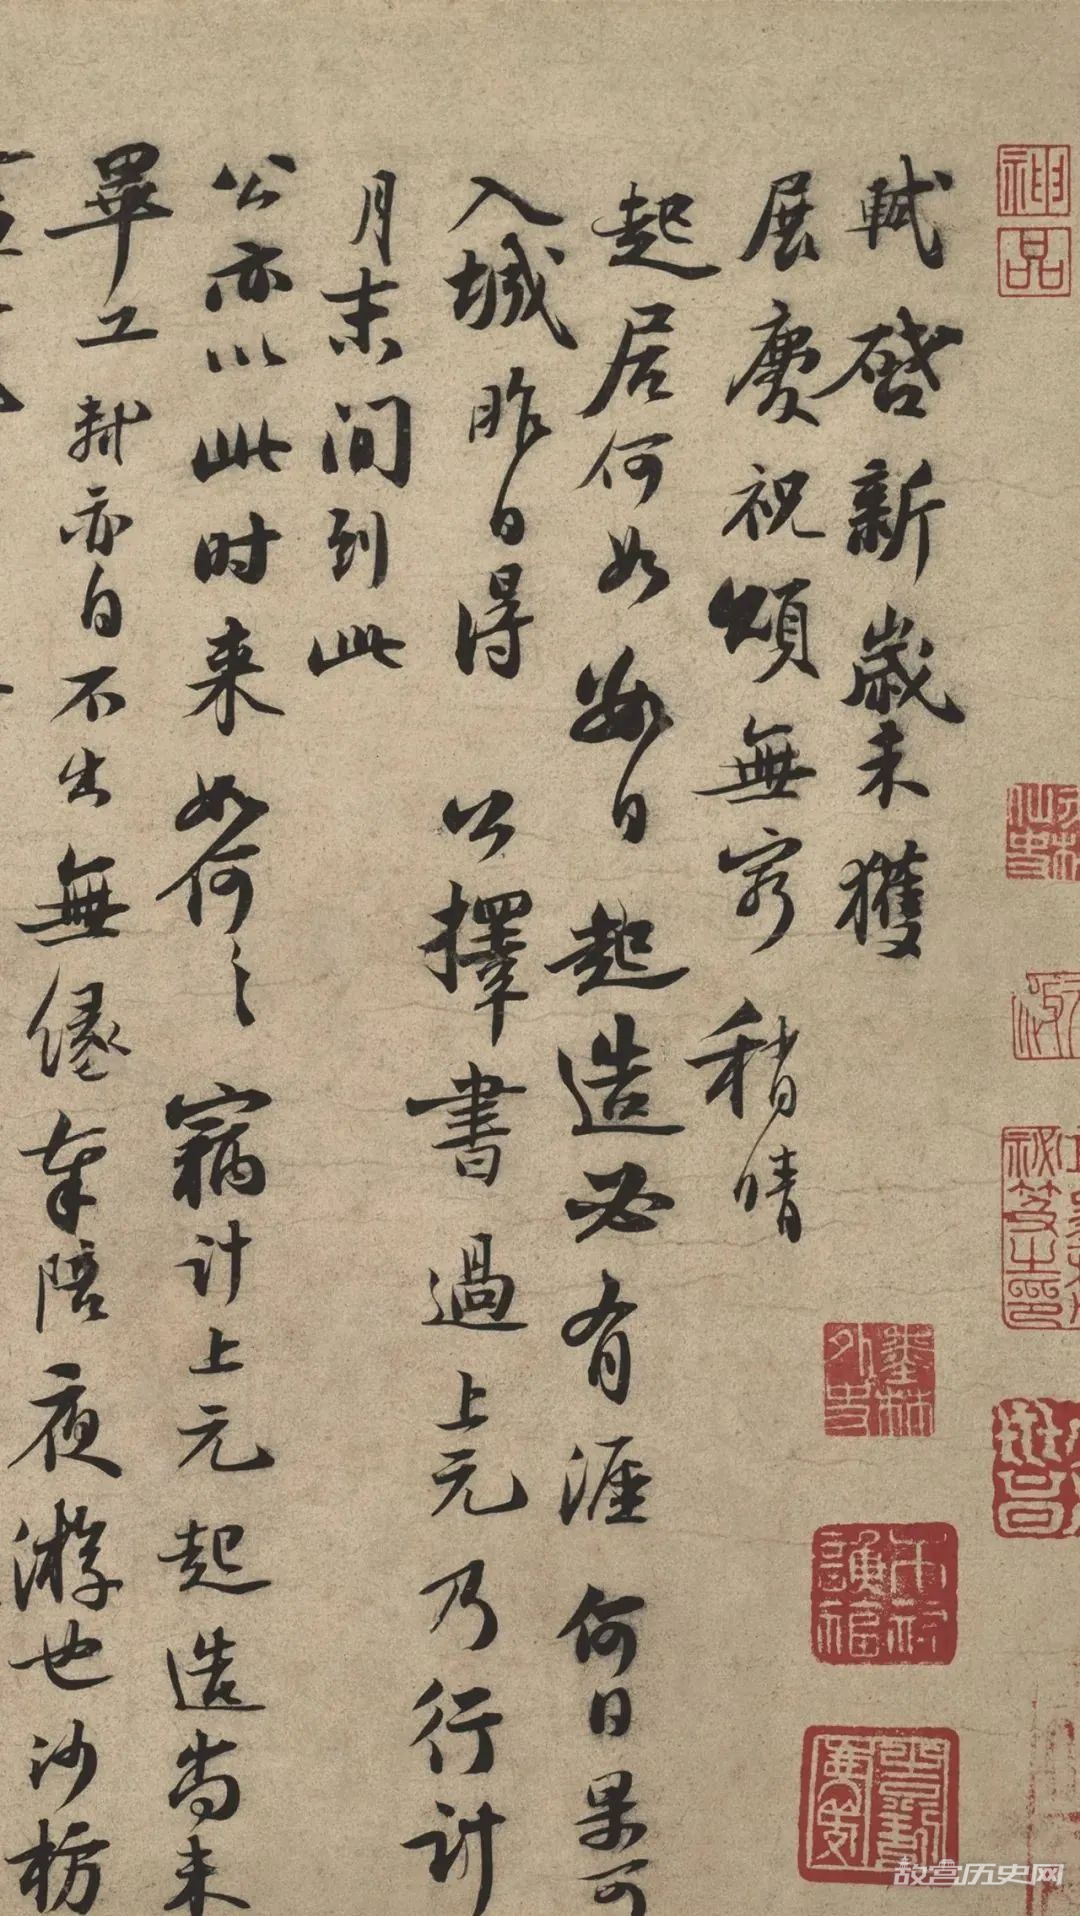 軾啓新歲未獲
展慶祝頌無窮稍晴
起居何如數日起造必有涯何日果可
入城昨日得公擇書過上元乃行計
月末間到此
公亦以此时来如何〻竊计上元起造尚未
畢工軾亦自不出無縁奉陪夜游也沙枋
神品
墨林外史
故宫历史网